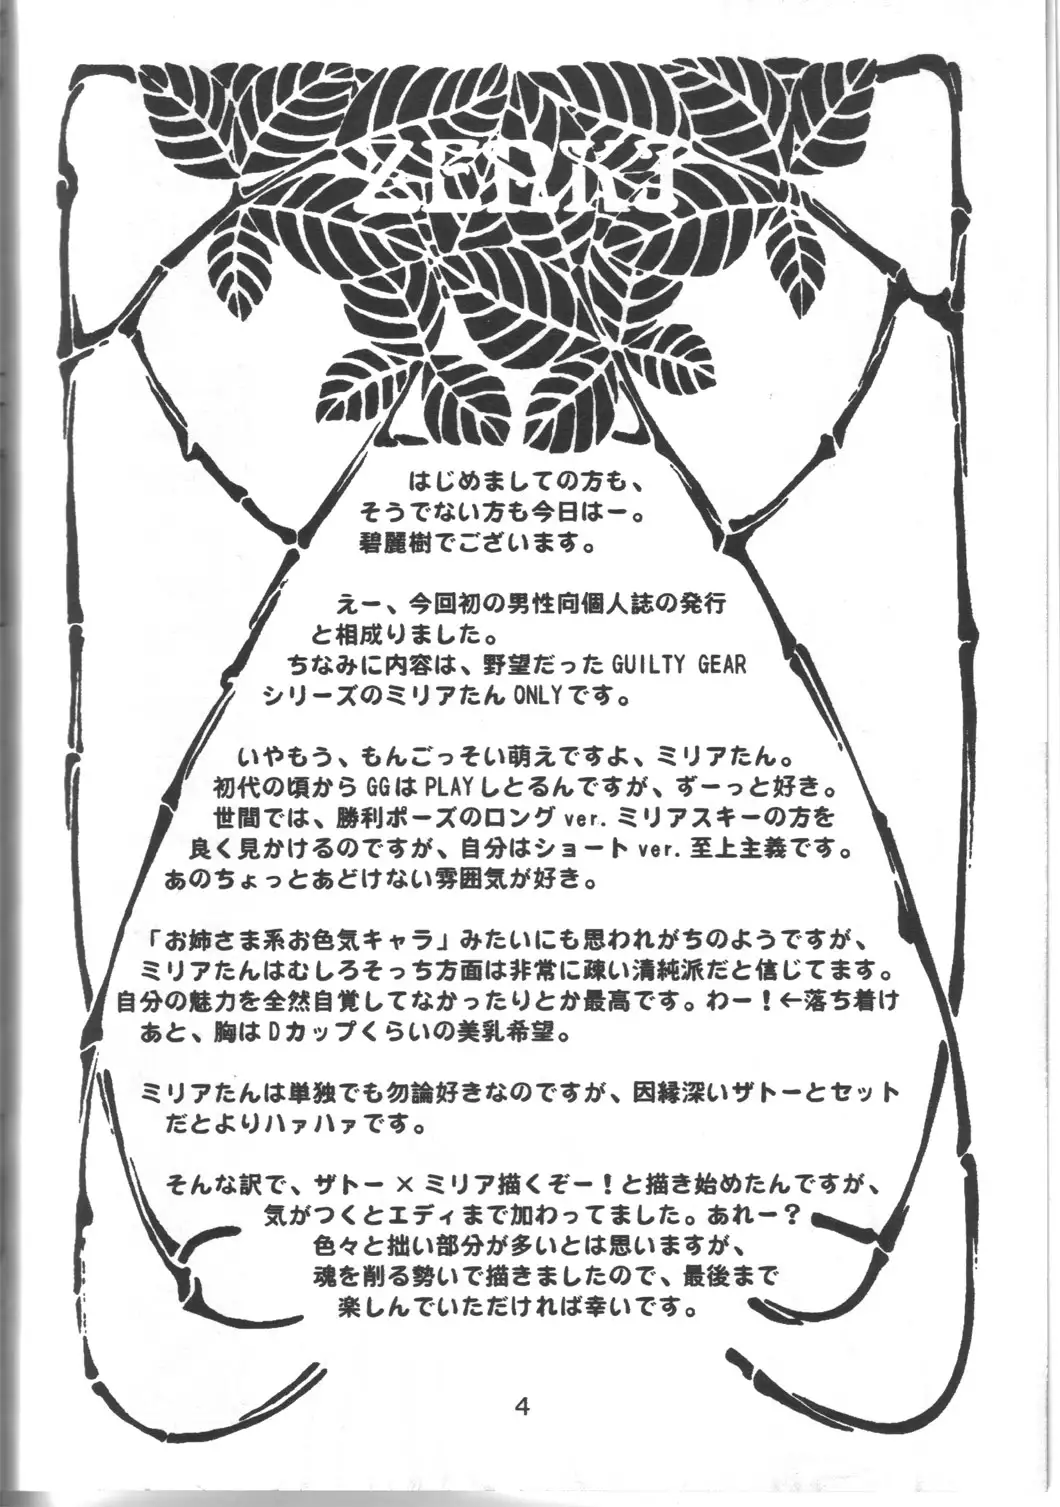 ZENKI
はじめましての方も、
そうでない方も今日はー。
碧麗樹でございます。
えー、今回初の男性向個人誌の発行
と相成りました。
ちなみに内容は、野望だった GUILTY GEAR
シリーズのミリアたん ONLY です。
いやもう、もんごっそい萌えですよ、ミリアたん。
初代の頃から GG は PLAY しとるんですが、ずーっと好き。
世間では、勝利ポーズのロング ver. ミリアスキーの方を
良く見かけるのですが、自分はショート ver. 至上主義です。
あのちょっとあどけない雰囲気が好き。
「お姉さま系お色気キャラ」みたいにも思われがちのようですが、
ミリアたんはむしろそっち方面は非常に疎い清純派だと信じてます。
自分の魅力を全然自覚してなかったりとか最高です。わー！←落ち着け
あと、胸は D カップくらいの美乳希望。
ミリアたんは単独でも勿論好きなのですが、因縁深いザトーとセット
だとよりハァハァです。
そんな訳で、ザトー×ミリア描くぞー！と描き始めたんですが、
気がつくとエディまで加わってました。あれー？
色々と拙い部分が多いとは思いますが、
魂を削る勢いで描きましたので、最後まで
楽しんでいただければ幸いです。
4